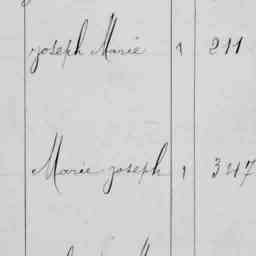 Joseph Marie 1 211
Marie Joseph 1 347